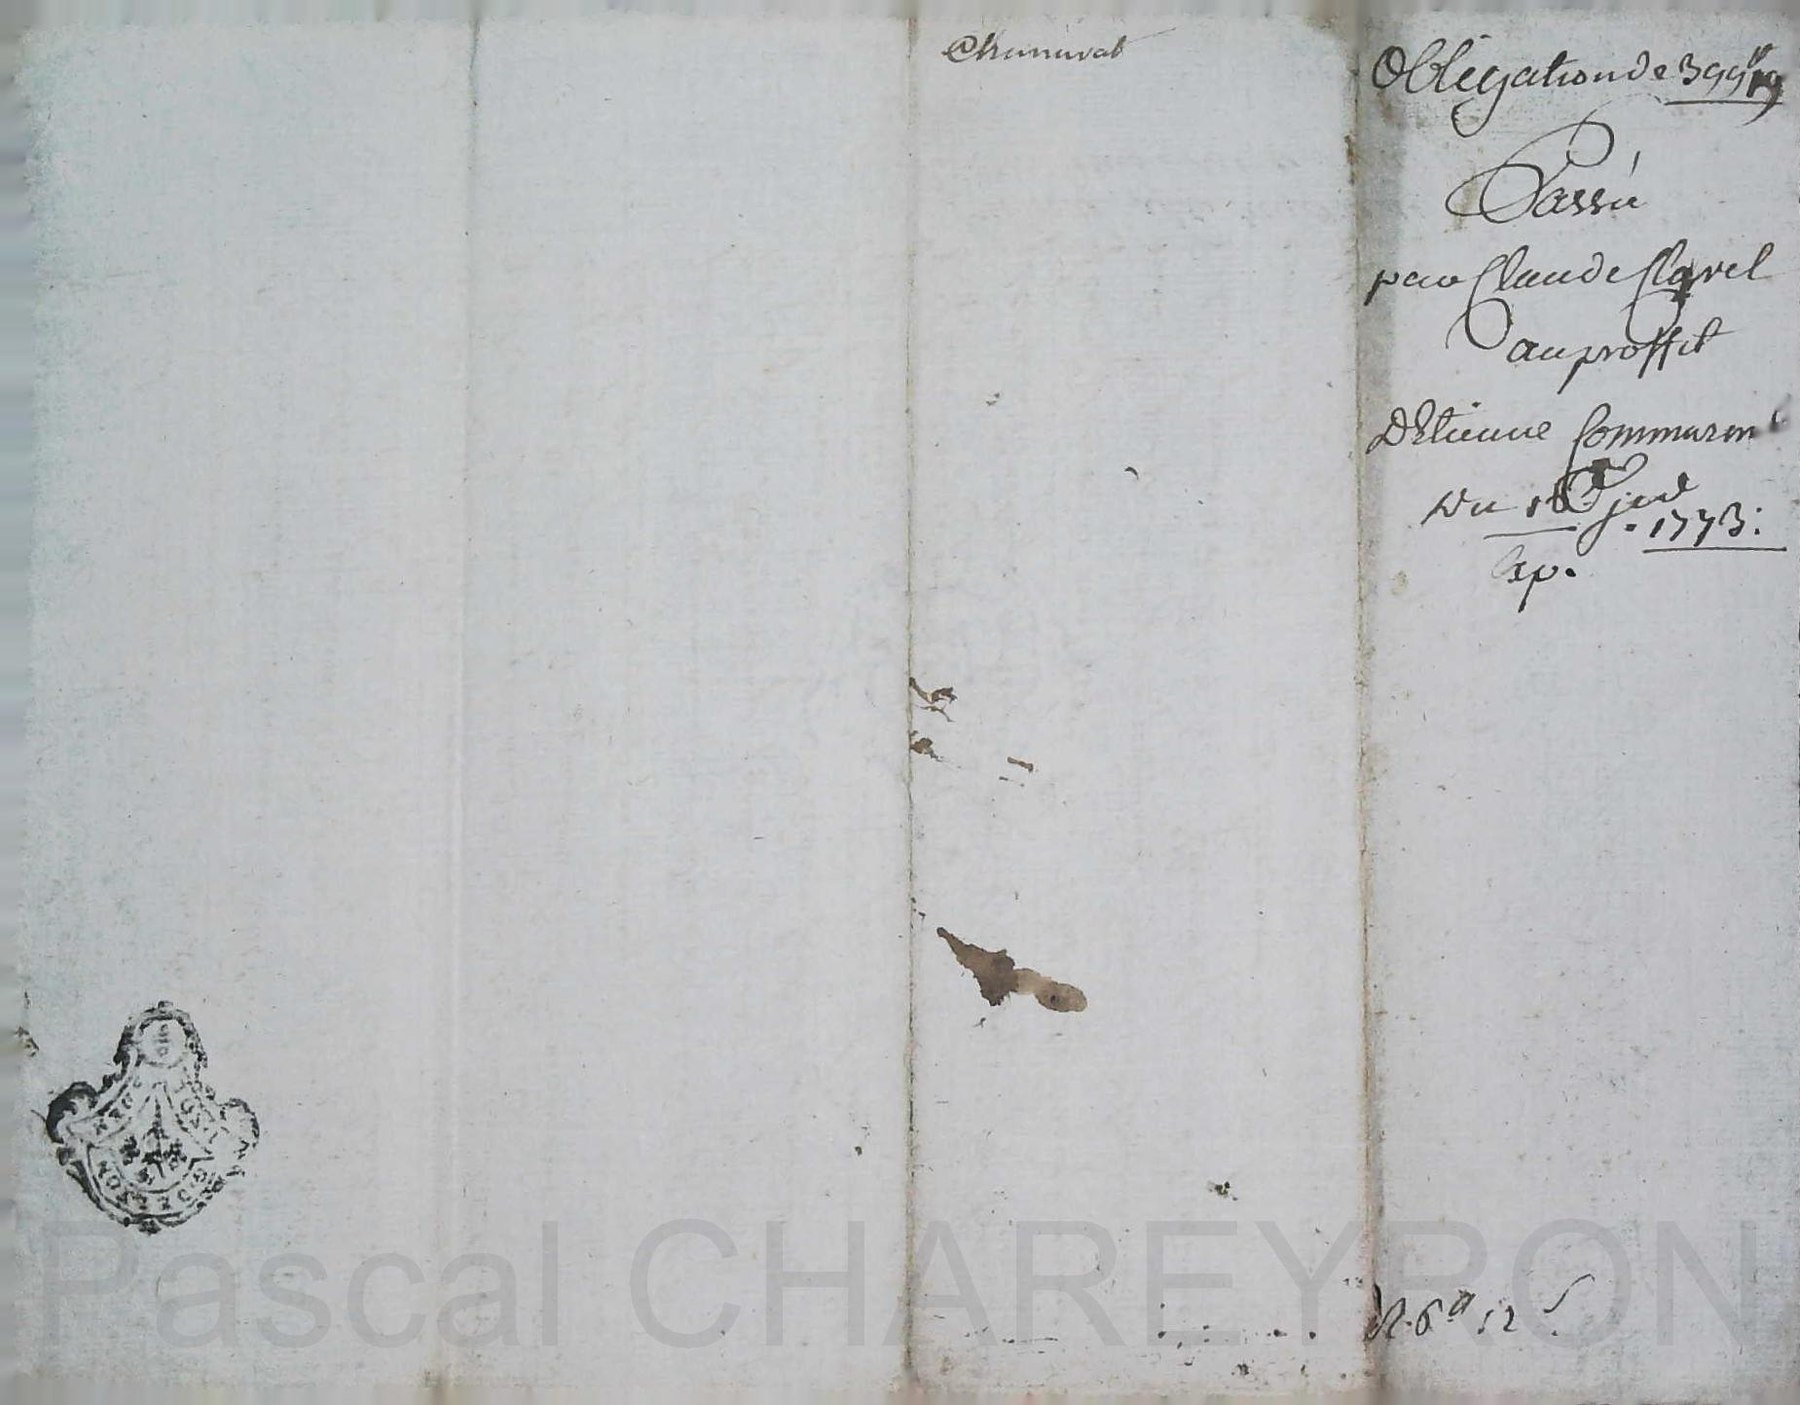 Obligation de 399ᵗᵗ 19
Passée
par Claude Clavel
au proffit
D'Etienne Commaron
Du 18 1773.
Exp.
R. 6ᵗᵗ 12 ſ
Pascal CHAREYRON